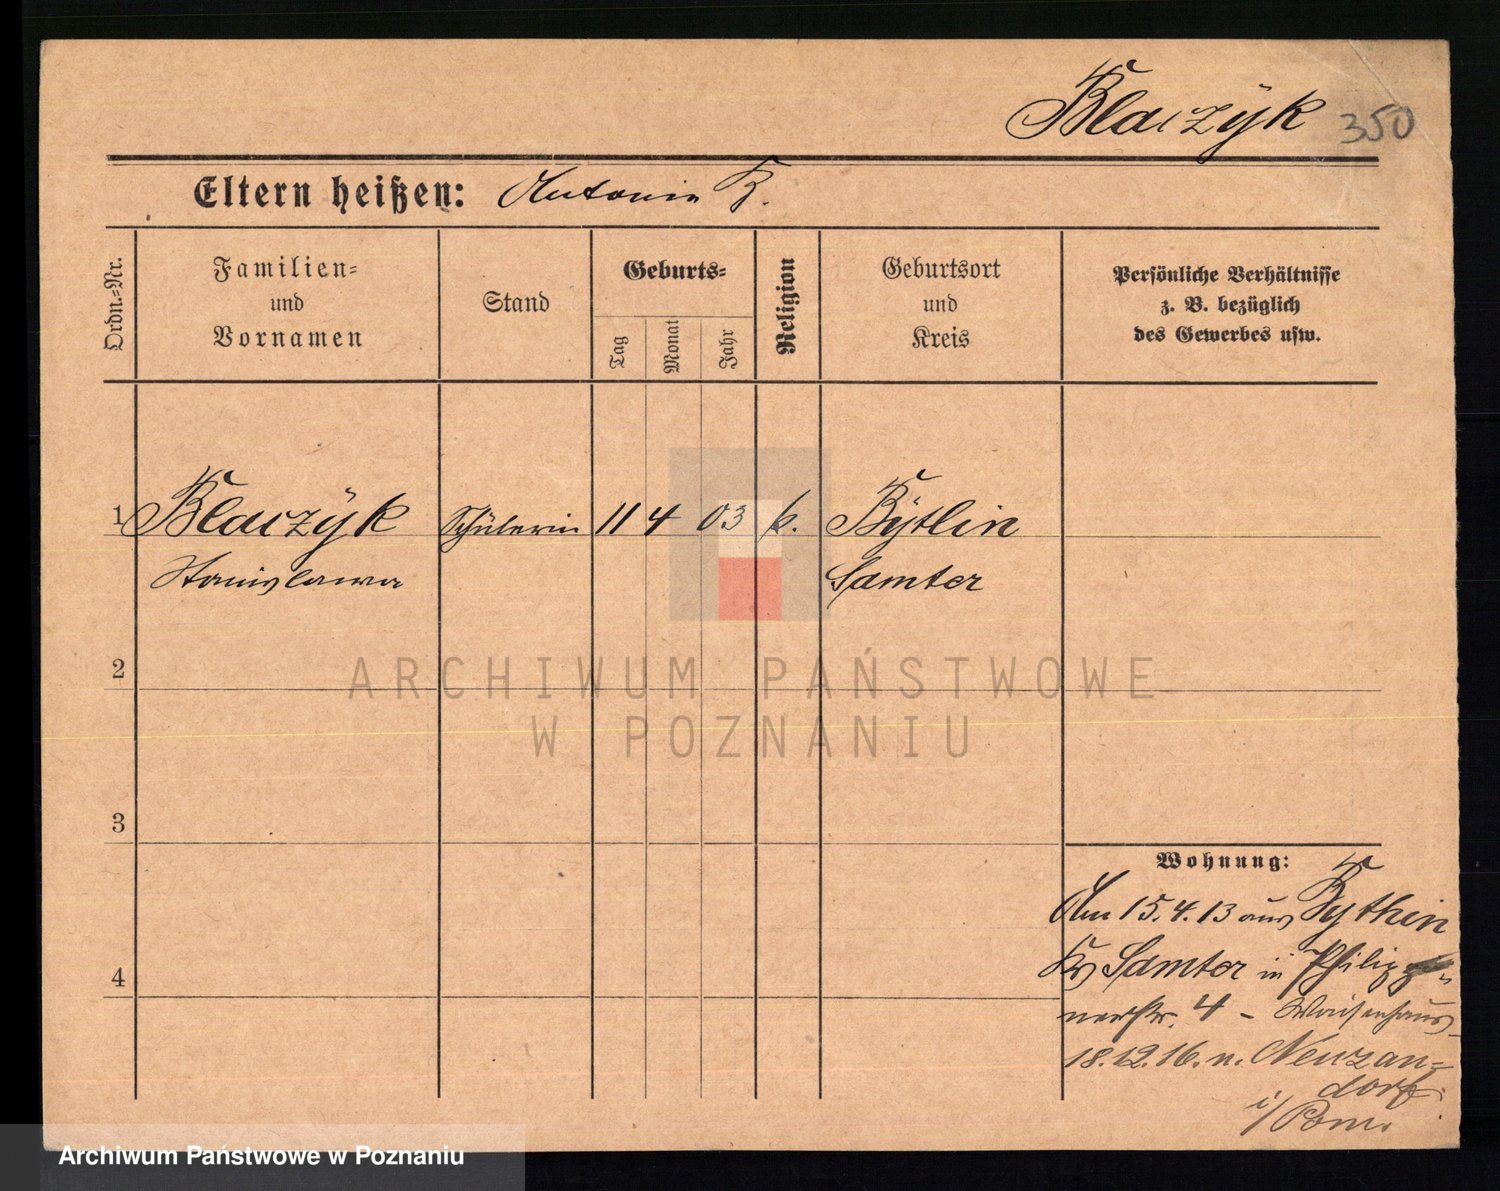 Blaczÿk 350
Eltern heißen: Antonie B.
Ordn.-Nr.
Familien-
und
Vornamen
Stand
Geburts-
Tag
Monat
Jahr
Religion
Geburtsort
und
Kreis
Persönliche Verhältnisse
z. B. bezüglich
des Gewerbes usw.
1 Blaczÿk Schülerin 11 4 03 k.
Stanislawa Samter
ARCHIWUM PAŃSTWOWE
W POZNANIU
2
3
4
Wohnung:
Am 15.4.13 aus
Kr Samter in
4 - Waisenhaus
18.12.16. n. Neuzan=
dorf
i/Pom.
Archiwum Państwowe w Poznaniu